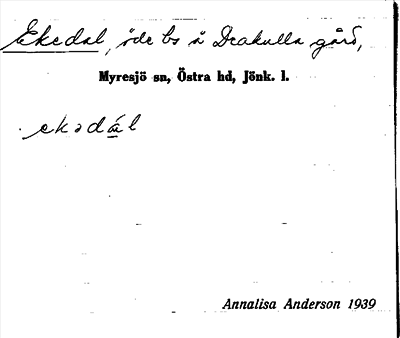 Ekedal, öde bs å Drakulla gård,
Myresjö sn, Östra hd, Jönk. l.
ekədá̲l
Annalisa Anderson 1939